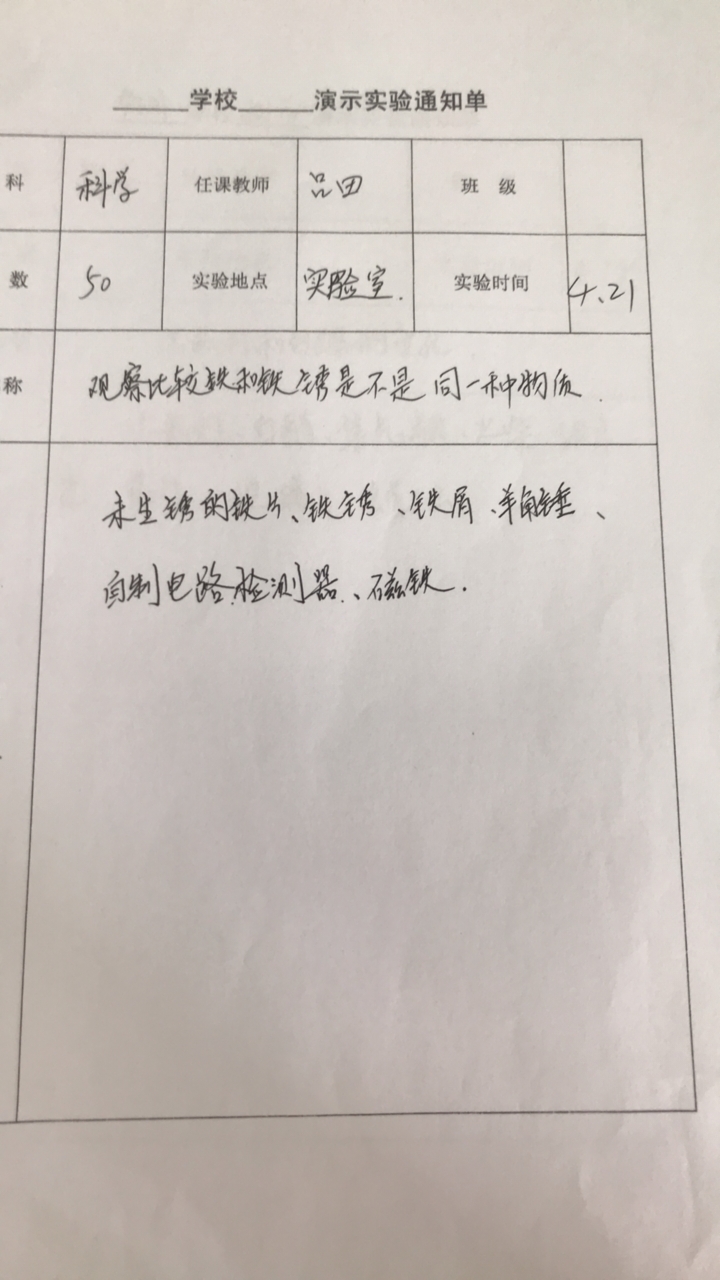 ______学校______演示实验通知单
科 科学 任课教师 吕田 班 级
数 50 实验地点 实验室. 实验时间 4.21
称 观察比较铁和铁锈是不是同一种物质.
未生锈的铁片、铁锈、铁屑、羊角锤、
自制电路检测器、磁铁.